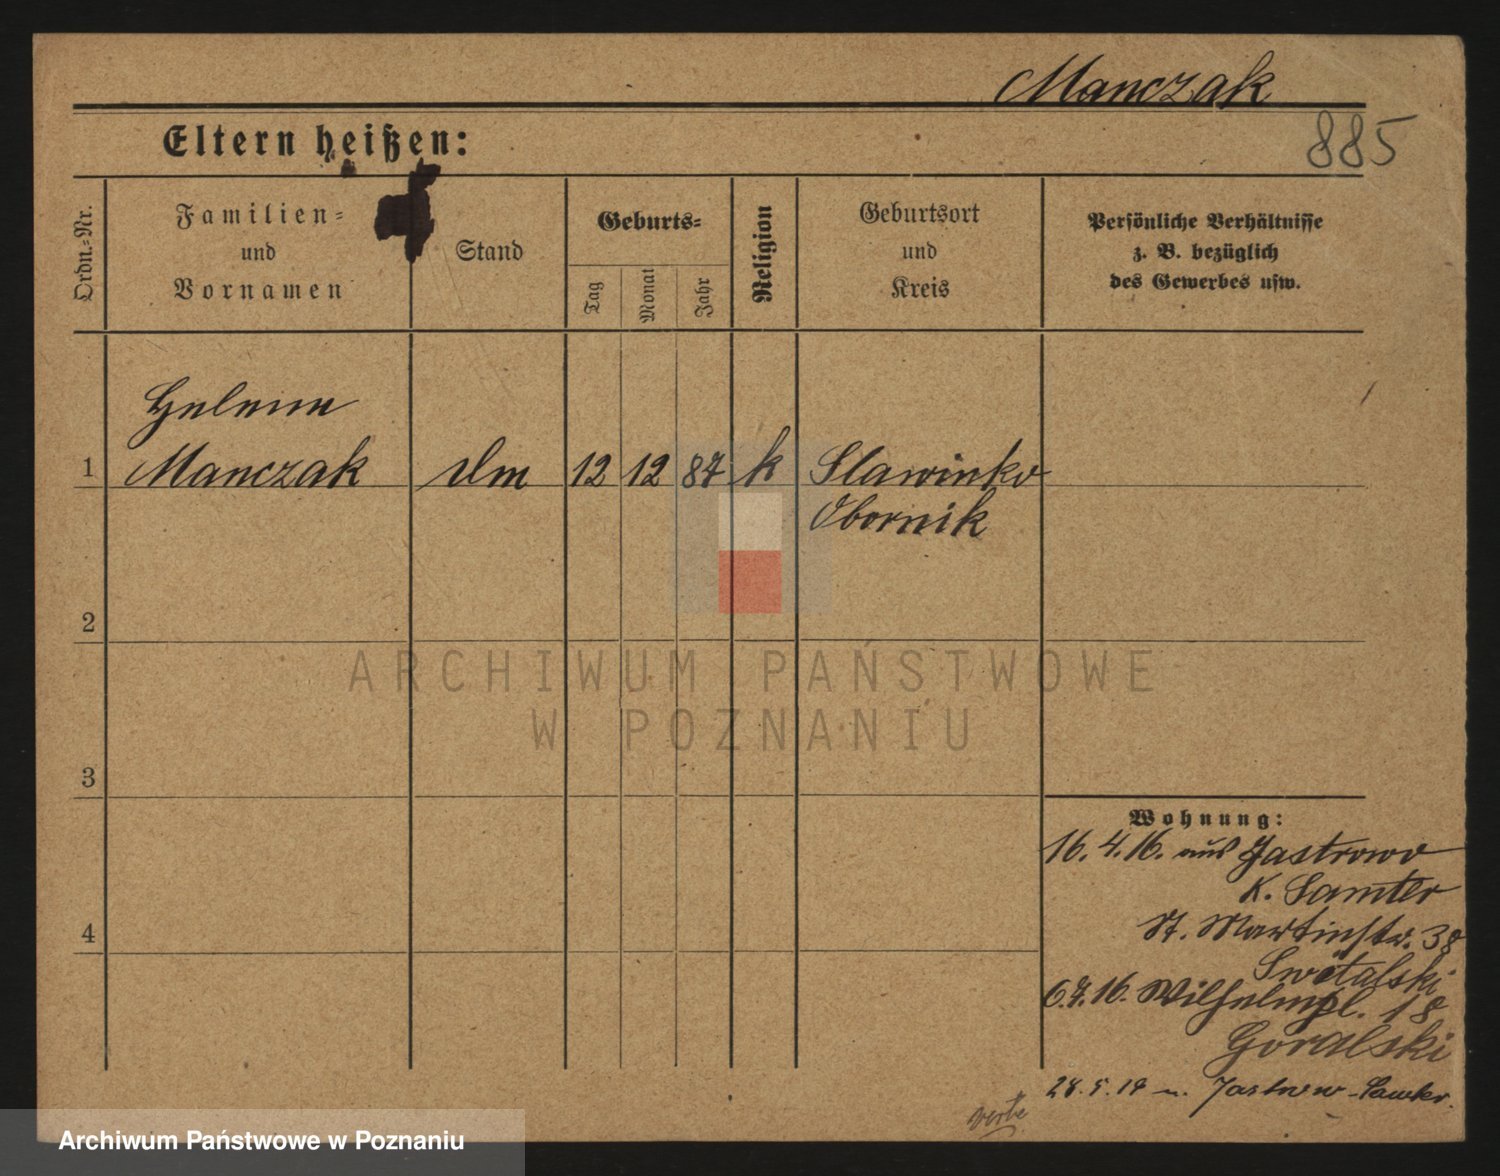 Manczak
885
Eltern heißen:
Ordn.-Nr.
Familien-
und
Vornamen
Stand
Geburts-
Tag
Monat
Jahr
Religion
Geburtsort
und
Kreis
Persönliche Verhältnisse
z. B. bezüglich
des Gewerbes usw.
Helene
1 Manczak Dm 12 12 87 k Slawinko
Obornik
2
3
4
Wohnung:
16.4.16. aus Jastrowo
K. Samter
St. Martinstr. 38
Swetalski
6.7.16. Wilhelmpl. 18
Goralski
28.5.17 n. Jastrow-Samter.
ARCHIWUM PAŃSTWOWE
W POZNANIU
Archiwum Państwowe w Poznaniu